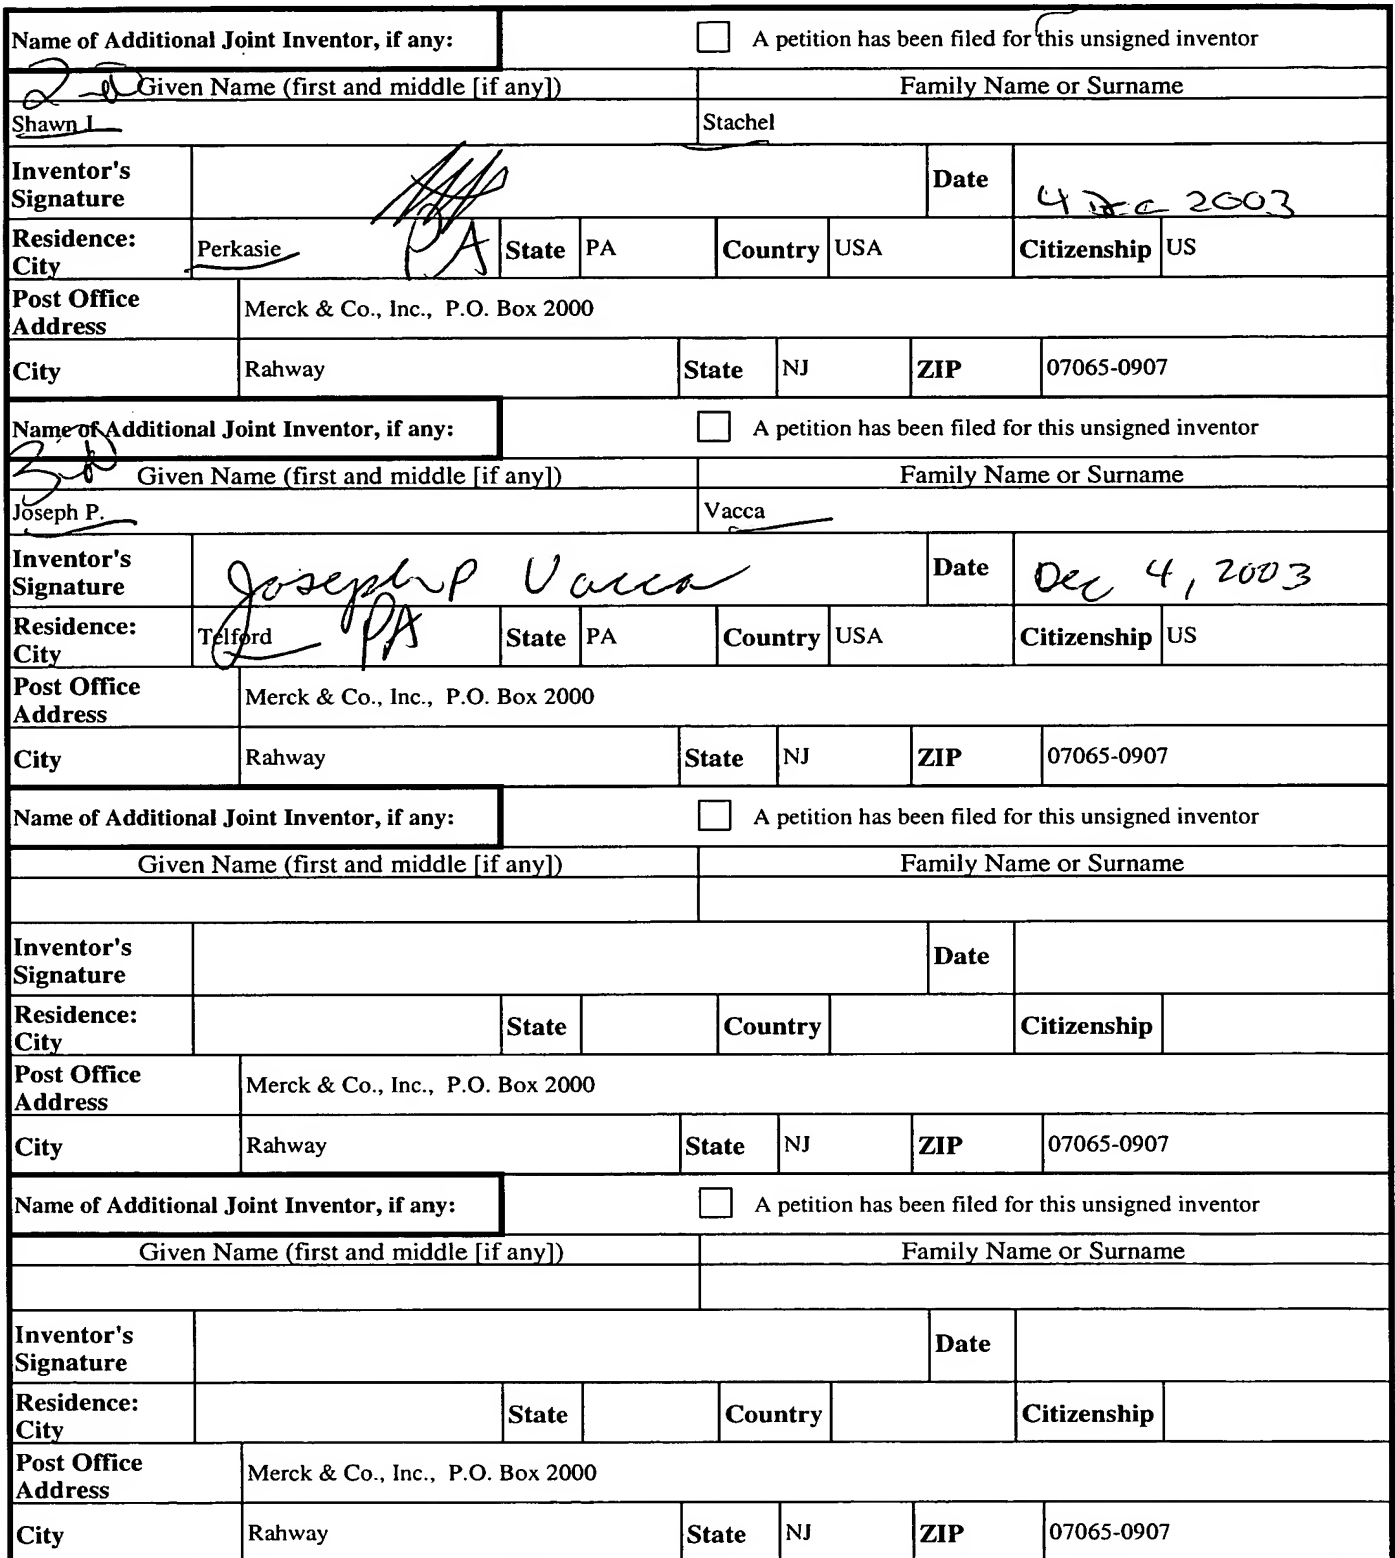 Name of Additional Joint Inventor, if any: A petition has been filed for this unsigned inventor
2-nd Given Name (first and middle [if any]) Family Name or Surname
Shawn J. Stachel
Inventor's Signature Date 4 Dec 2003
Residence: City Perkasie PA State PA Country USA Citizenship US
Post Office Address Merck & Co., Inc., P.O. Box 2000
City Rahway State NJ ZIP 07065-0907
Name of Additional Joint Inventor, if any: A petition has been filed for this unsigned inventor
3-rd Given Name (first and middle [if any]) Family Name or Surname
Joseph P. Vacca
Inventor's Signature Joseph P Vacca Date Dec 4, 2003
Residence: City Telford PA State PA Country USA Citizenship US
Post Office Address Merck & Co., Inc., P.O. Box 2000
City Rahway State NJ ZIP 07065-0907
Name of Additional Joint Inventor, if any: A petition has been filed for this unsigned inventor
Given Name (first and middle [if any]) Family Name or Surname
Inventor's Signature Date
Residence: City State Country Citizenship
Post Office Address Merck & Co., Inc., P.O. Box 2000
City Rahway State NJ ZIP 07065-0907
Name of Additional Joint Inventor, if any: A petition has been filed for this unsigned inventor
Given Name (first and middle [if any]) Family Name or Surname
Inventor's Signature Date
Residence: City State Country Citizenship
Post Office Address Merck & Co., Inc., P.O. Box 2000
City Rahway State NJ ZIP 07065-0907